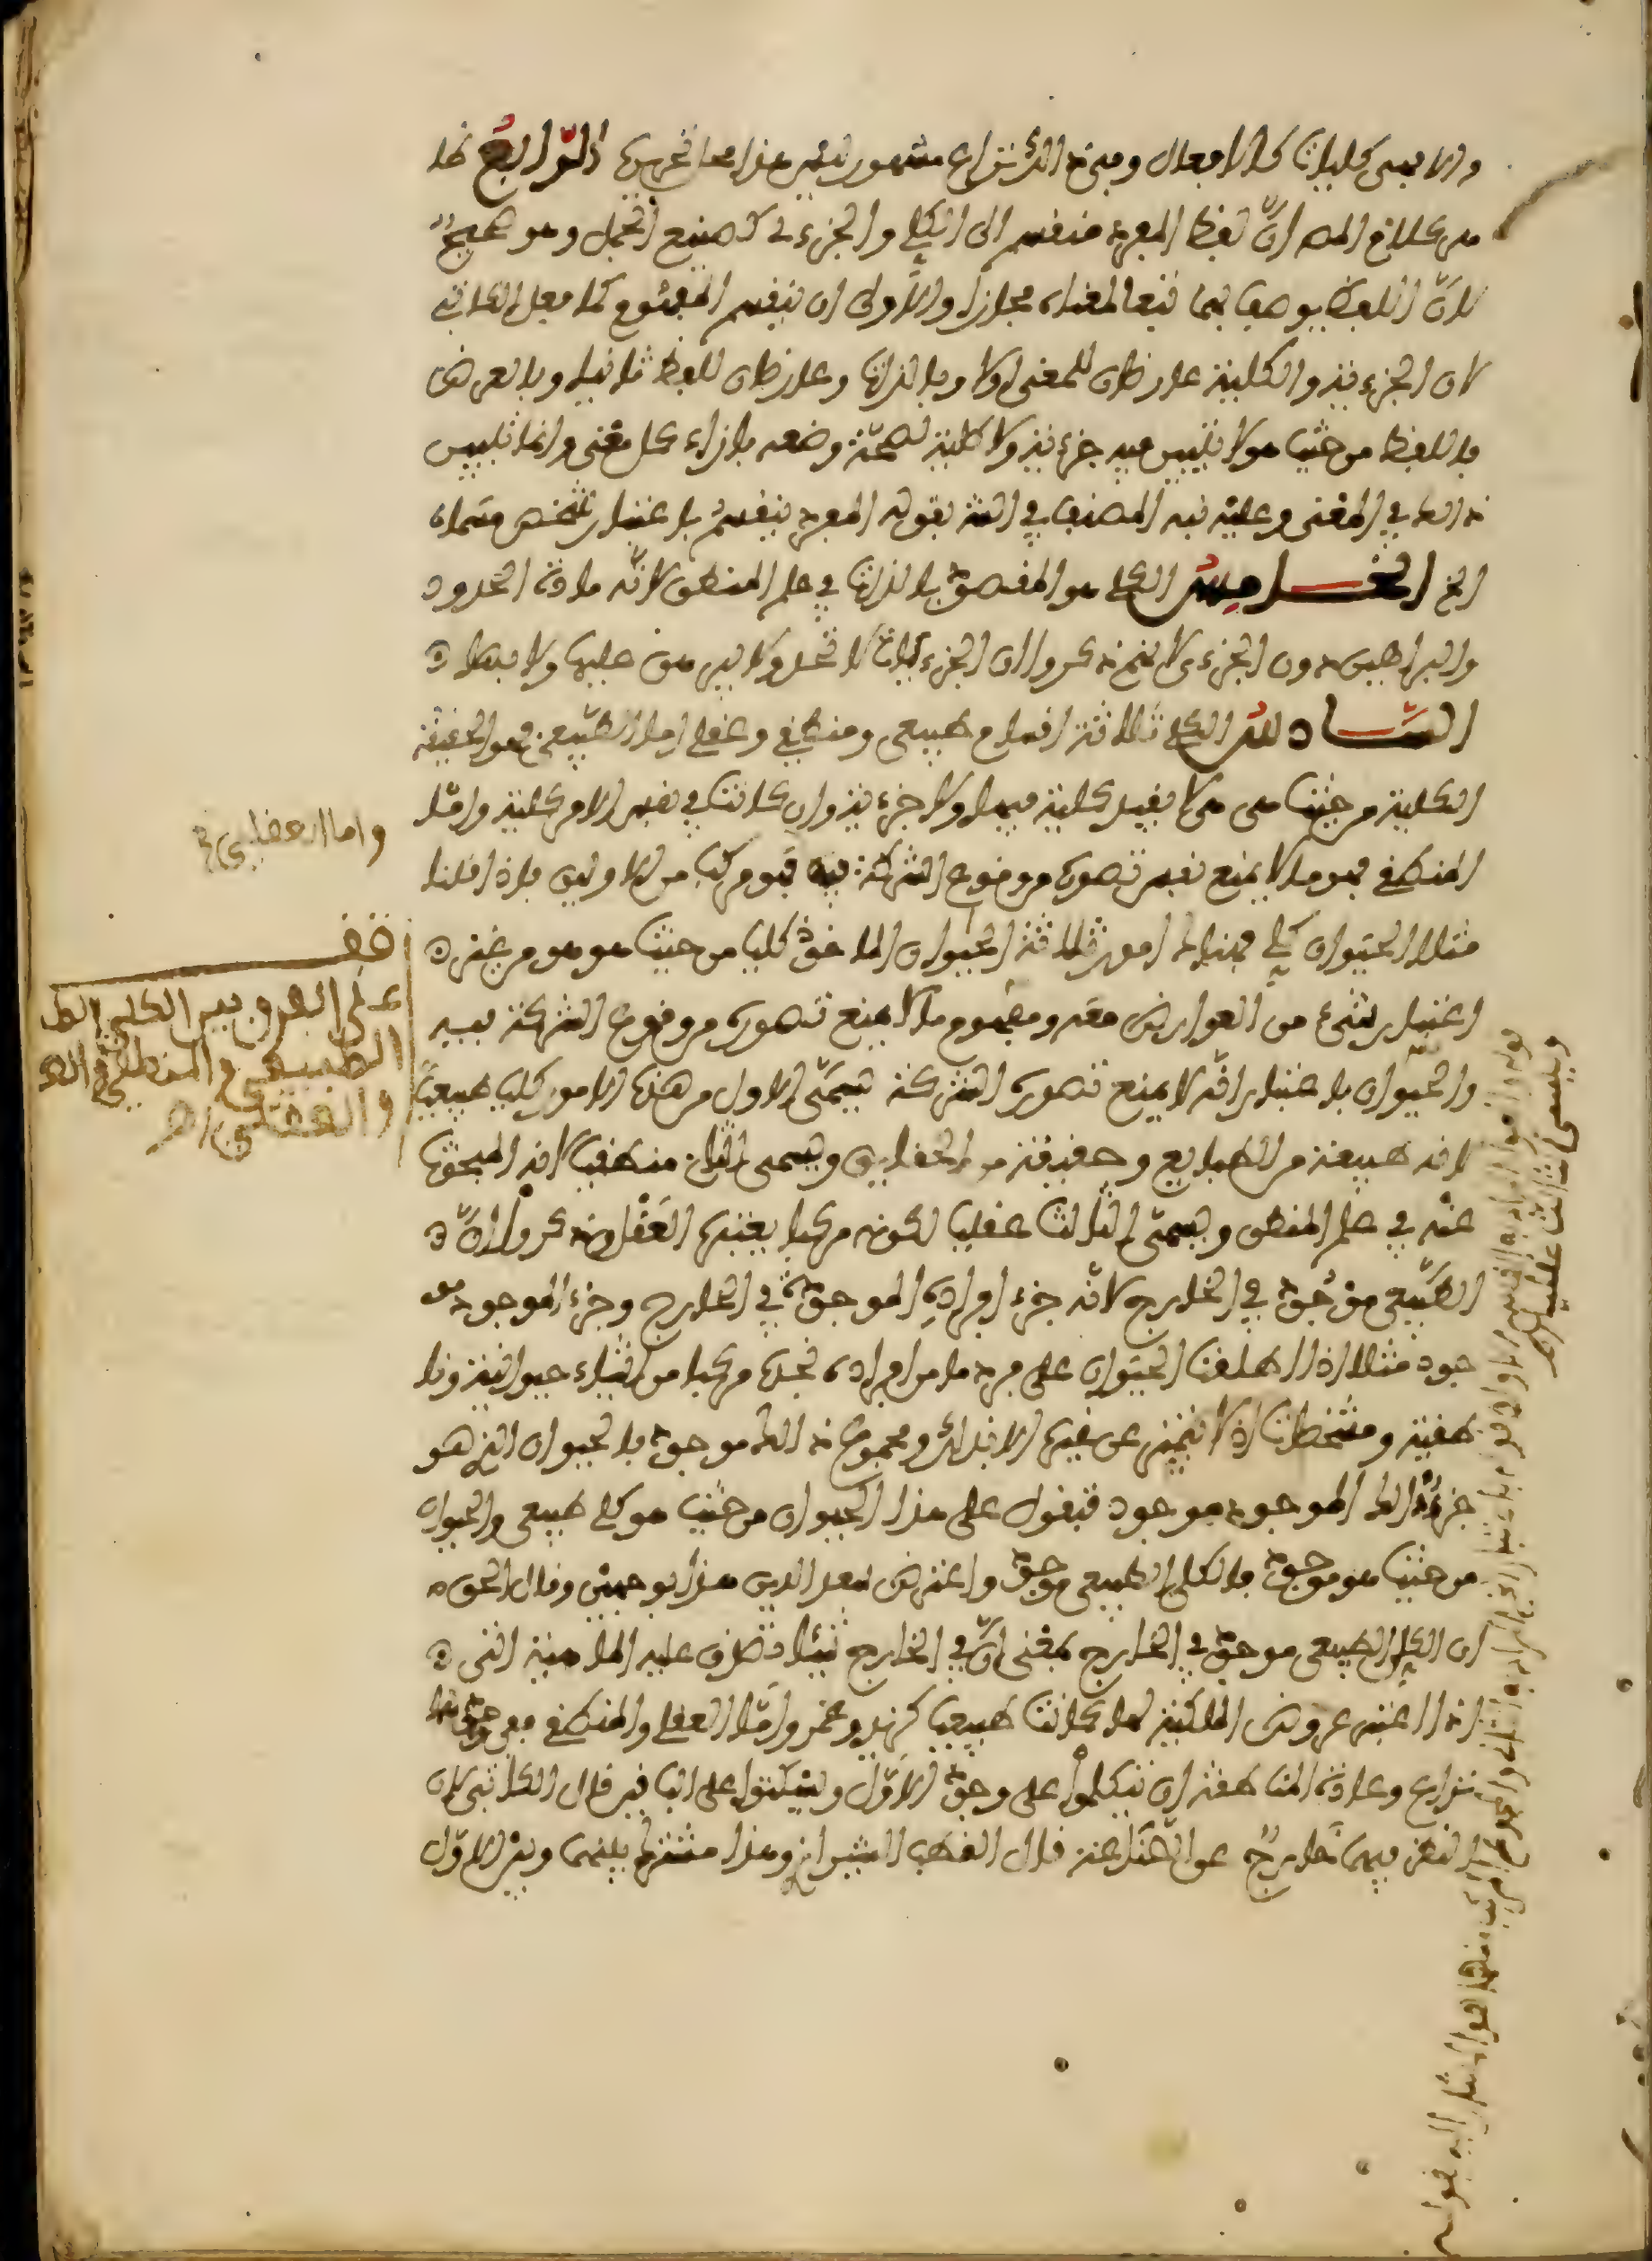 والا فهى كليات كالافعال وفى ذالك نزاع مشهور ليس هذا محل تحريره الرابع ظا
هر كلام المصـ ان لفظ المفرد منقسم الى الكلي والجزءي كصنيع الجمل وهو صحيح
لان اللفظ يوصف بهما تبعا لمعناه مجازا والاولى ان ينقسم المفهوم كما فعل الكاتبي
لان الجزءية والكلية عارضان للمعنى اولا وبالذات وعارضان للفظ ثانيا وبالعرض
فاللفظ من حيث هو لا تلبيس فيه جزءية ولا كلية لصحة وضعه بازاء كل معنى وانما تلبيس
ذالك في المعنى وعليه نبه المصنف في الشـ بقوله المفرد ينقسم باعتبار تشخص مسماه
الخ الخامس الكلي هو المقصود بالذات في علم المنطق لانه مادة الحدود
والبراهين دون الجزءي لانهم ذكروا ان الجزءيات لا تحد ولا يبرهن عليها ولا بها
السادس الكلي ثلاثة اقسام طبيعي ومنطقي وعقلي اما الطبيعي فهو الحقيقة
الكلية من حيث هي هي لا بقيد كلية فيها ولا جزءية وان كانت في نفس الامر كلية واما
المنطقي فهو ما لا يمنع نفس تصوره من وقوع الشركة فيه فهو مركب من الاولين فاذا قلنا
مثلا الحيوان كلي فهناك امور ثلاثة الحيوان الماخوذ كليا من حيث هو هو من غير
اعتبار شيء من العوارض معه ومفهوم ما لا يمنع تصوره من وقوع الشركة فيه
والحيوان باعتبار انه لا يمنع تصوره الشركة فيسمى الاول من هذه الامور كليا طبيعيا
لانه طبيعة من الطبايع وحقيقة من الحقايق ويسمى الثاني منطقيا لانه المبحوث
عنه في علم المنطق ويسمى الثالث عقليا لكونه مركبا يعتبره العقل وذكروا ان
الطبيعي موجود في الخارج لانه جزء افراده الموجودة في الخارج وجزء الموجود مو
جود مثلا اذا اطلقت الحيوان على فرد ما من افراده تجده مركبا من اشياء حيوانية ونا
طقية ومشخصات اذ لا يتميز عن غيره الا بذالك ومجموع ذالك موجود فالحيوان الذي هو
جزء ذالك الموجود موجود فتقول على هذا الحيوان من حيث هو كلي طبيعي والحيوان
من حيث هو موجود فالكلي الطبيعي موجود واعترض سعد الدين هذا بوجهين وقال الحق
ان الكلي الطبيعي موجود في الخارج بمعنى ان في الخارج شيئا تصدق عليه الماهية التي
اذا اعتبر عروض الكلية لها كانت طبيعيا كزيد وعمر واما العقلي والمنطقي ففي وجودهما
نزاع وعادة المناطقة ان يتكلموا على وجود الاول ويسكتوا على الباقين قال الكاتبي لان
النظر فيهما خارج عن الصناعة قال القطب الشيرازي وهذا مشترك بينهما وبين الاول
واما العقلي
قف
على الفرق بين الكلي
الطبيعي والمنطقي
والعقلي اهـ
ويسمى الثالث عقليا